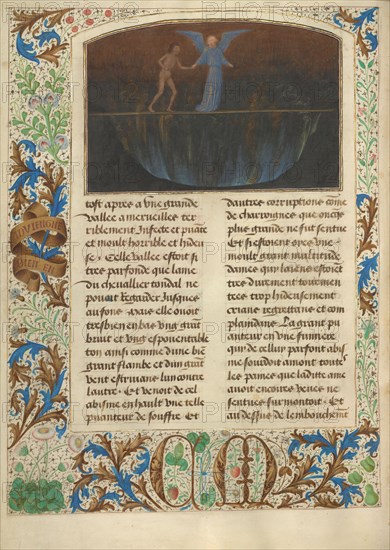 tost apres a vne grande
vallee a merueilles ter
riblement Infecte et puāte
et moult horrible et hideu
se Celle vallee estoit si
tres parfonde que lame
du cheualier tondal ne
pouoit Regarder Jusques
au fons
tresbien en bas vng grāt
bruit et vng espouentable
ton ainsi comme dune biē
grant flambe et dun grāt
vent estriuans lun contre
lautre Et venoit de cel
abisme en hault vne telle
puanteur de souffre Et
dautre corruptions cōme
de charoignes que oncqs
plus grande ne fut sentue
Et si estoient
moult grant multitude
dames qui laiens estoiēt
tres durement tourmen
tees trop hideusement
crians regrettans et com
plaindans La grant pu
anteur en vne fumiere
qui de celluy parfont abis
me sourdoit amont toutes
les paines que laditte ame
auoit encores veues ne
senties surmontoit Et
au dessus de lembouchemt
CM